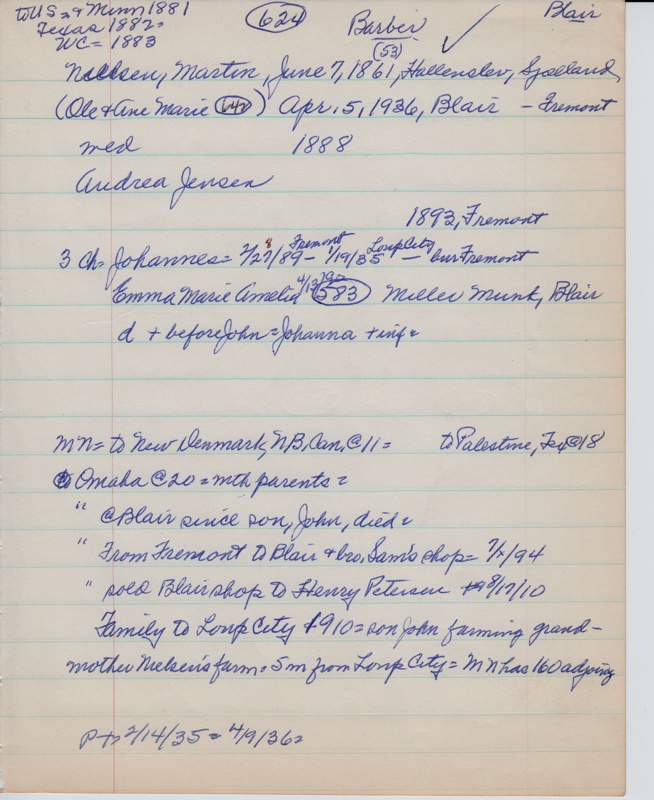 to US = & Minn 1881
Texas 1882 =
WC = 1883
624
Barber
(53)
Blair
Nielsen, Martin, June 7, 1861, Hallenslev, Sjælland
(Ole & Ane Marie 642) Apr. 5, 1936, Blair - Fremont
med 1888
Andrea Jensen
1892, Fremont
3 Ch = Johannes = 2/27/89 - Fremont 1/19/35 Loup City - bur Fremont
Emma Marie Amelia 4/13/92 583 Miller Munk, Blair
d + before John = Johanna + inf =
MN = to New Denmark, N.B, Can, @ 11 = to Palestine, Tex @ 18
to Omaha @ 20 = mth parents =
" @ Blair since son, John, died =
" From Fremont to Blair & bro, Sam's shop = 94
" sold Blair shop to Henry Petersen 8/17/10
Family to Loup City 1910 = son John farming grand-
mother Nielsen's farm = 5 m from Loup City = MN has 160 adjoing
2/14/35 = 4/9/36 =